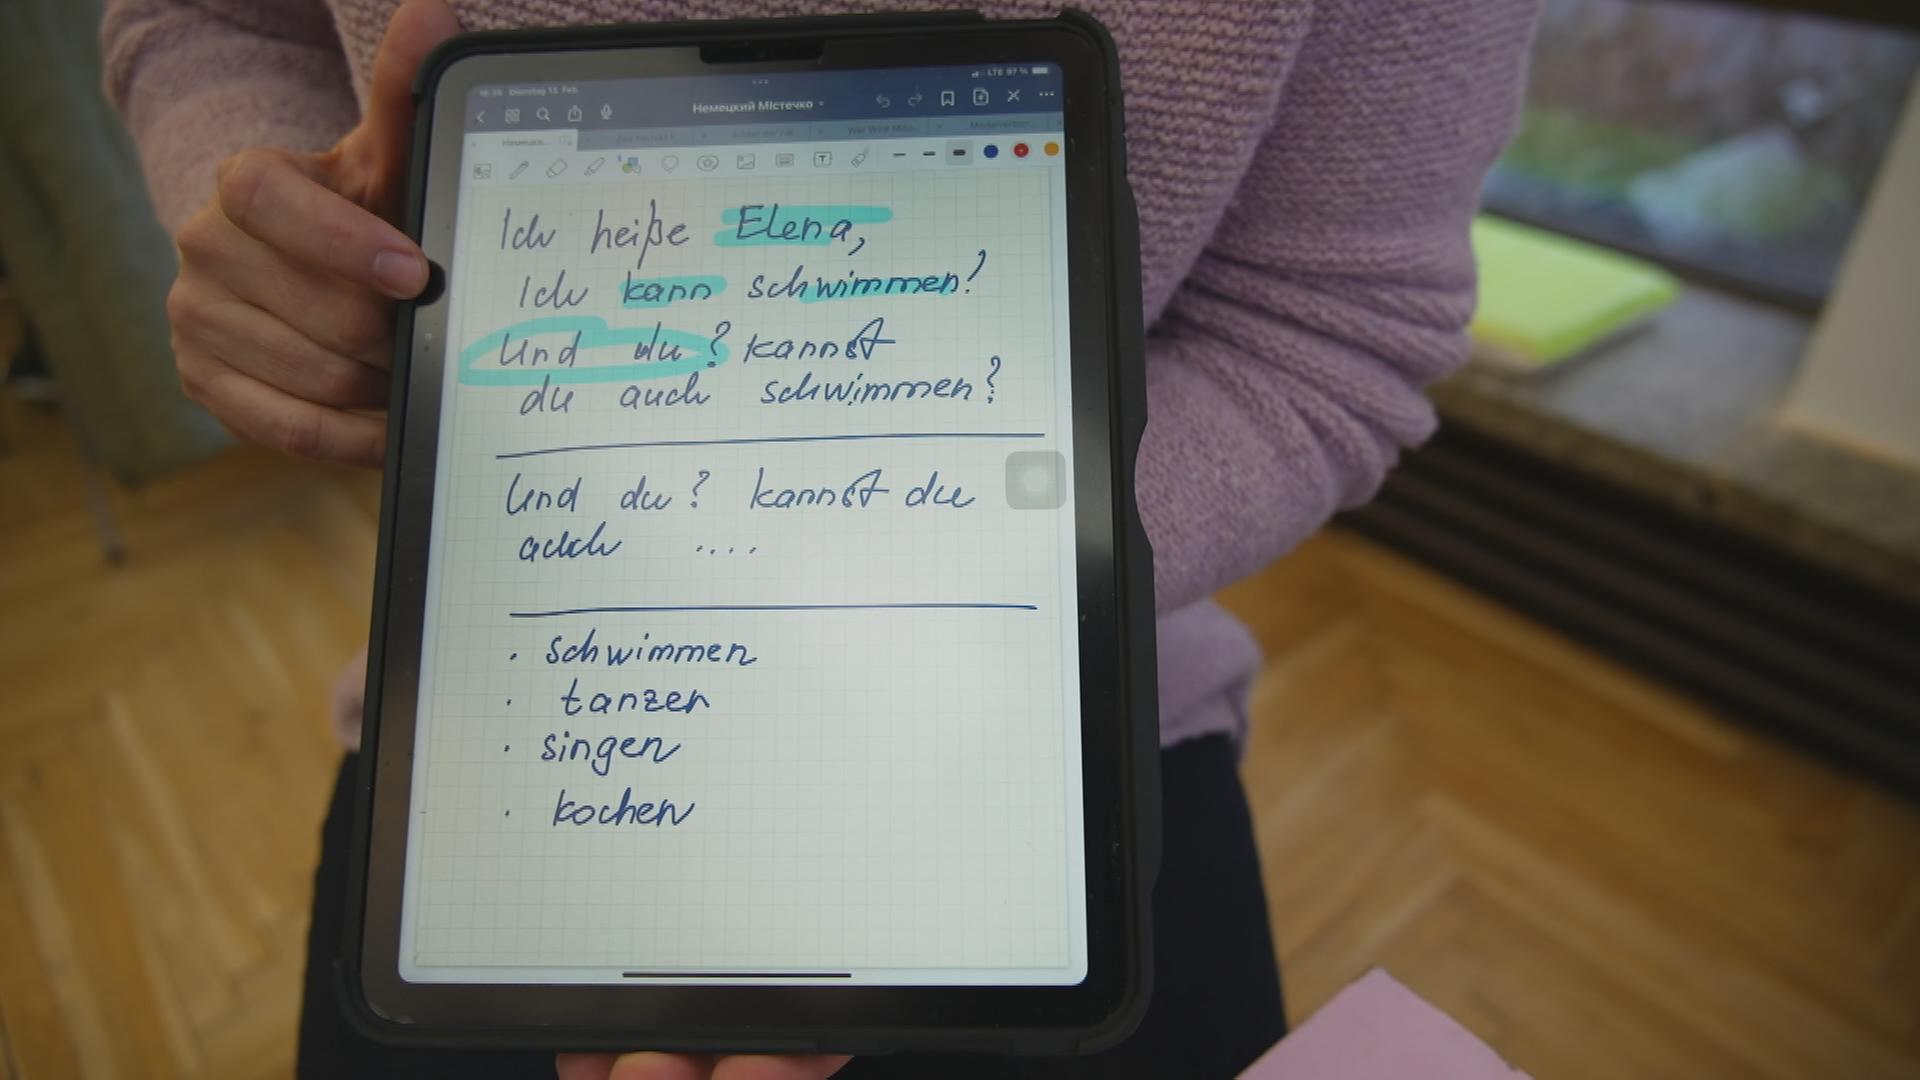 Dienstag 13. Feb.
LTE 97 %
Немецкий Містечко
Ich heiße Elena,
Ich kann schwimmen!
Und du? kannst
du auch schwimmen?
Und du? kannst du
auch ....
· schwimmen
· tanzen
· singen
· kochen